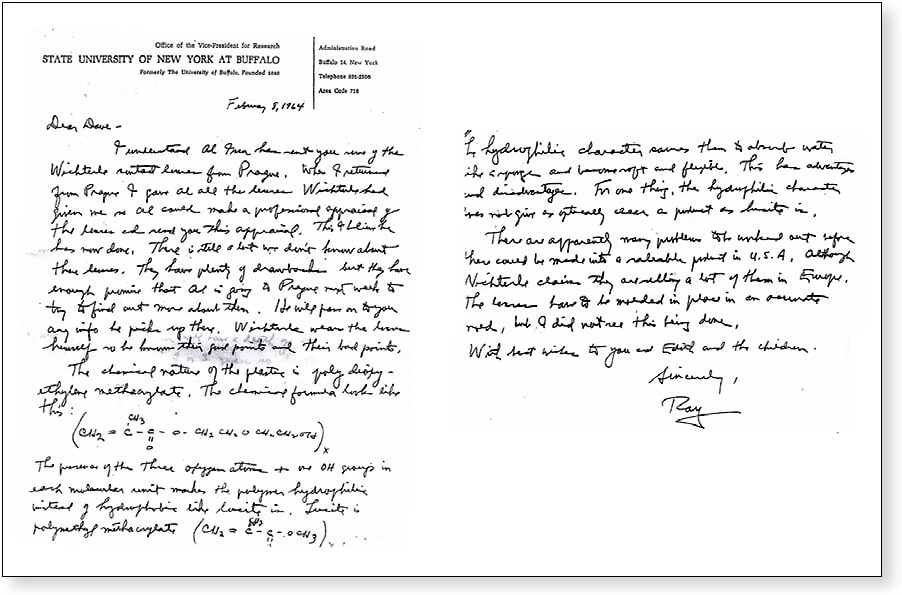 Office of the Vice-President for Research
STATE UNIVERSITY OF NEW YORK AT BUFFALO
Formerly The University of Buffalo, Founded 1846
Administration Road
Buffalo 14, New York
Telephone 831-2506
Area Code 716
February 8, 1964
Dear Dave -
I understand Al has sent you some of the
Wichterle contact lenses from Prague. When I returned
from Prague I gave Al all the lenses Wichterle had
given me so Al could make a professional appraisal of
the lenses and send you this appraisal. This I believe he
has now done. There is still a lot we don't know about
these lenses. They have plenty of drawbacks but they have
enough promise that Al is going to Prague next week to
try to find out more about them. He will pass on to you
any info he picks up there. Wichterle wears the lenses
himself so he knows their good points and their bad points.
The chemical nature of the plastic is poly
ethylene methacrylate. The chemical formula looks like
this:
CH3
(CH2 = C - C - O - CH2 CH2 O CH2 CH2 OH)x
O
The presence of the three oxygen atoms + one OH group in
each molecular unit makes the polymer hydrophilic
instead of hydrophobic like lucite is. Lucite is
polymethyl methacrylate (CH2 = C - C - OCH3)x
CH3
hydrophilic character causes them to absorb water
like a sponge and become soft and flexible. This has advantages
and disadvantages. For one thing, the hydrophilic character
does not give as optically clear a product as lucite is.
There are apparently many problems to be worked out before
these could be made into a saleable product in U.S.A. Although
Wichterle claims they are selling a lot of them in Europe.
The lenses have to be molded in place in an accurate
mold, but I did not see this being done.
With best wishes to you and Edith and the children.
Sincerely,
Ray